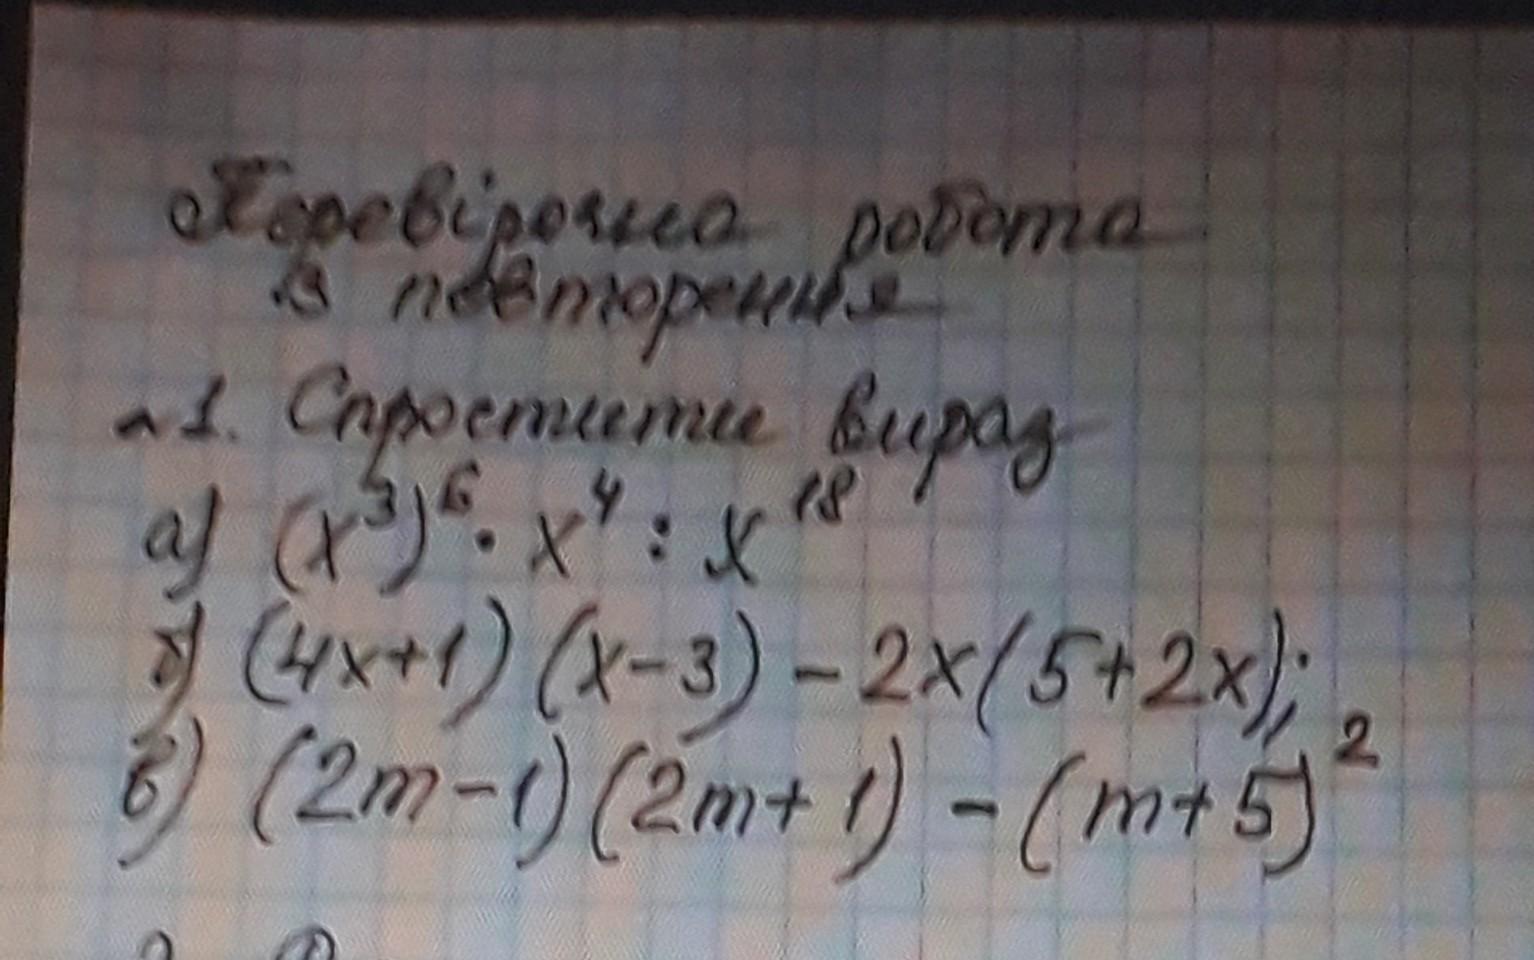 Перевірочна робота
з повторення
№1. Спростити вираз
а) (x³)⁶ · x⁴ : x¹⁸
б) (4x+1)(x-3) - 2x(5+2x);
в) (2m-1)(2m+1) - (m+5)²